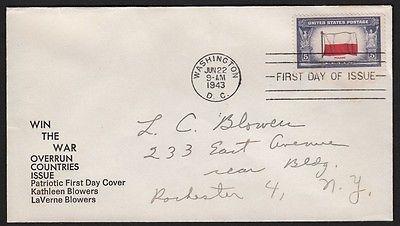 UNITED STATES POSTAGE
5 5
POLAND
WASHINGTON
JUN 22
9-AM
1943
D. C.
FIRST DAY OF ISSUE
WIN
THE
WAR
OVERRUN
COUNTRIES
ISSUE
Patriotic First Day Cover
Kathleen Blowers
LaVerne Blowers
L. C. Blowers
233 East Avenue
rear Bldg.
Rochester 4, N. Y.